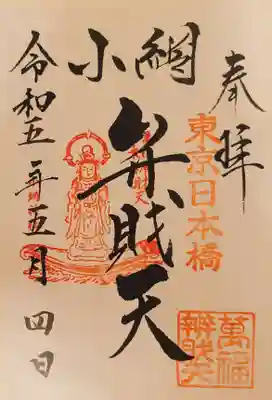 奉拝
東京日本橋
小網
弁財天
萬福
辨財天
令和五年五月四日